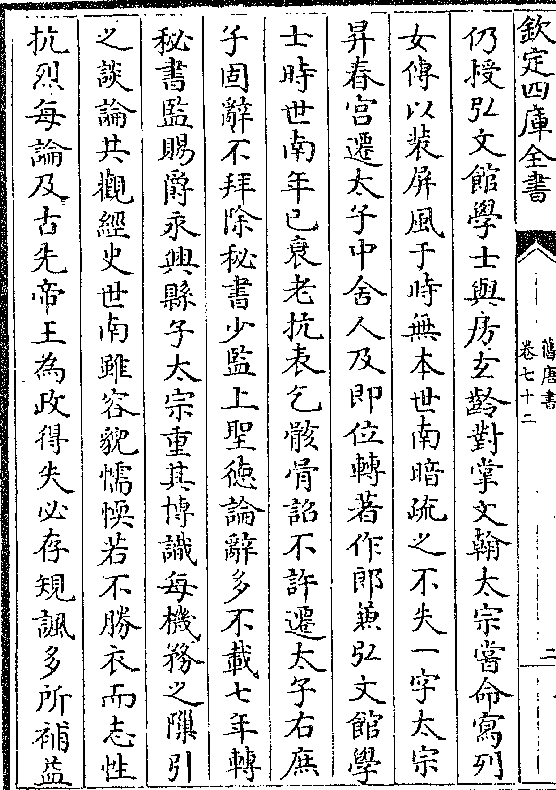 欽定四庫全書
舊唐書
卷七十二
二
仍授弘文館學士與房玄齡對掌文翰太宗嘗命寫列
女傳以裝屏風于時無本世南暗疏之不失一字太宗
昇春宮遷太子中舍人及即位轉著作郎兼弘文館學
士時世南年已衰老抗表乞骸骨詔不許遷太子右庶
子固辭不拜除秘書少監上聖德論辭多不載七年轉
秘書監賜爵永興縣子太宗重其博識每機務之隟引
之談論共觀經史世南雖容貌懦愞若不勝衣而志性
抗烈每論及古先帝王為政得失必存規諷多所補益